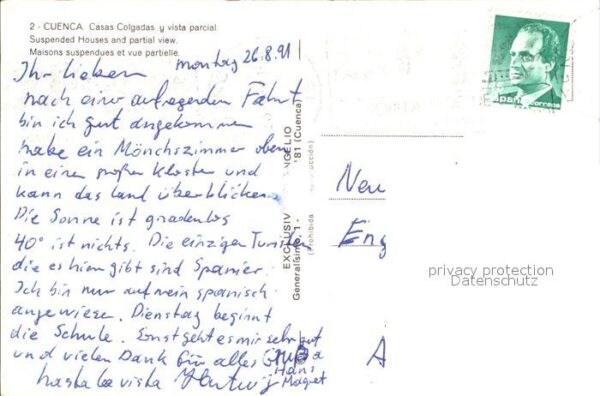 2 - CUENCA. Casas Colgadas y vista parcial.
Suspended Houses and partial view.
Maisons suspendues et vue partielle.
montag 26.8.91
Ihr lieben
nach einer aufregenden Fahrt
bin ich gut angekommen
habe ein Mönchszimmer oben
in einen großen Kloster und
kann das Land überblicken.
Die Sonne ist gnadenlos
40° ist nichts. Die einzigen Turisten
die es hier gibt sind Spanier.
Ich bin nur auf mein spanisch
angewiesen. Dienstag beginnt
die Schule. Sonst geht es mir sehr gut
und vielen Dank für alles
hasta la vista Hartwig
Hans
Magret
EXCLUSIV
NGELIO
Generalísimo, 1 -
'81 (Cuenca)
(Prohibida
Neu
Eng
A
españa correos
privacy protection
Datenschutz